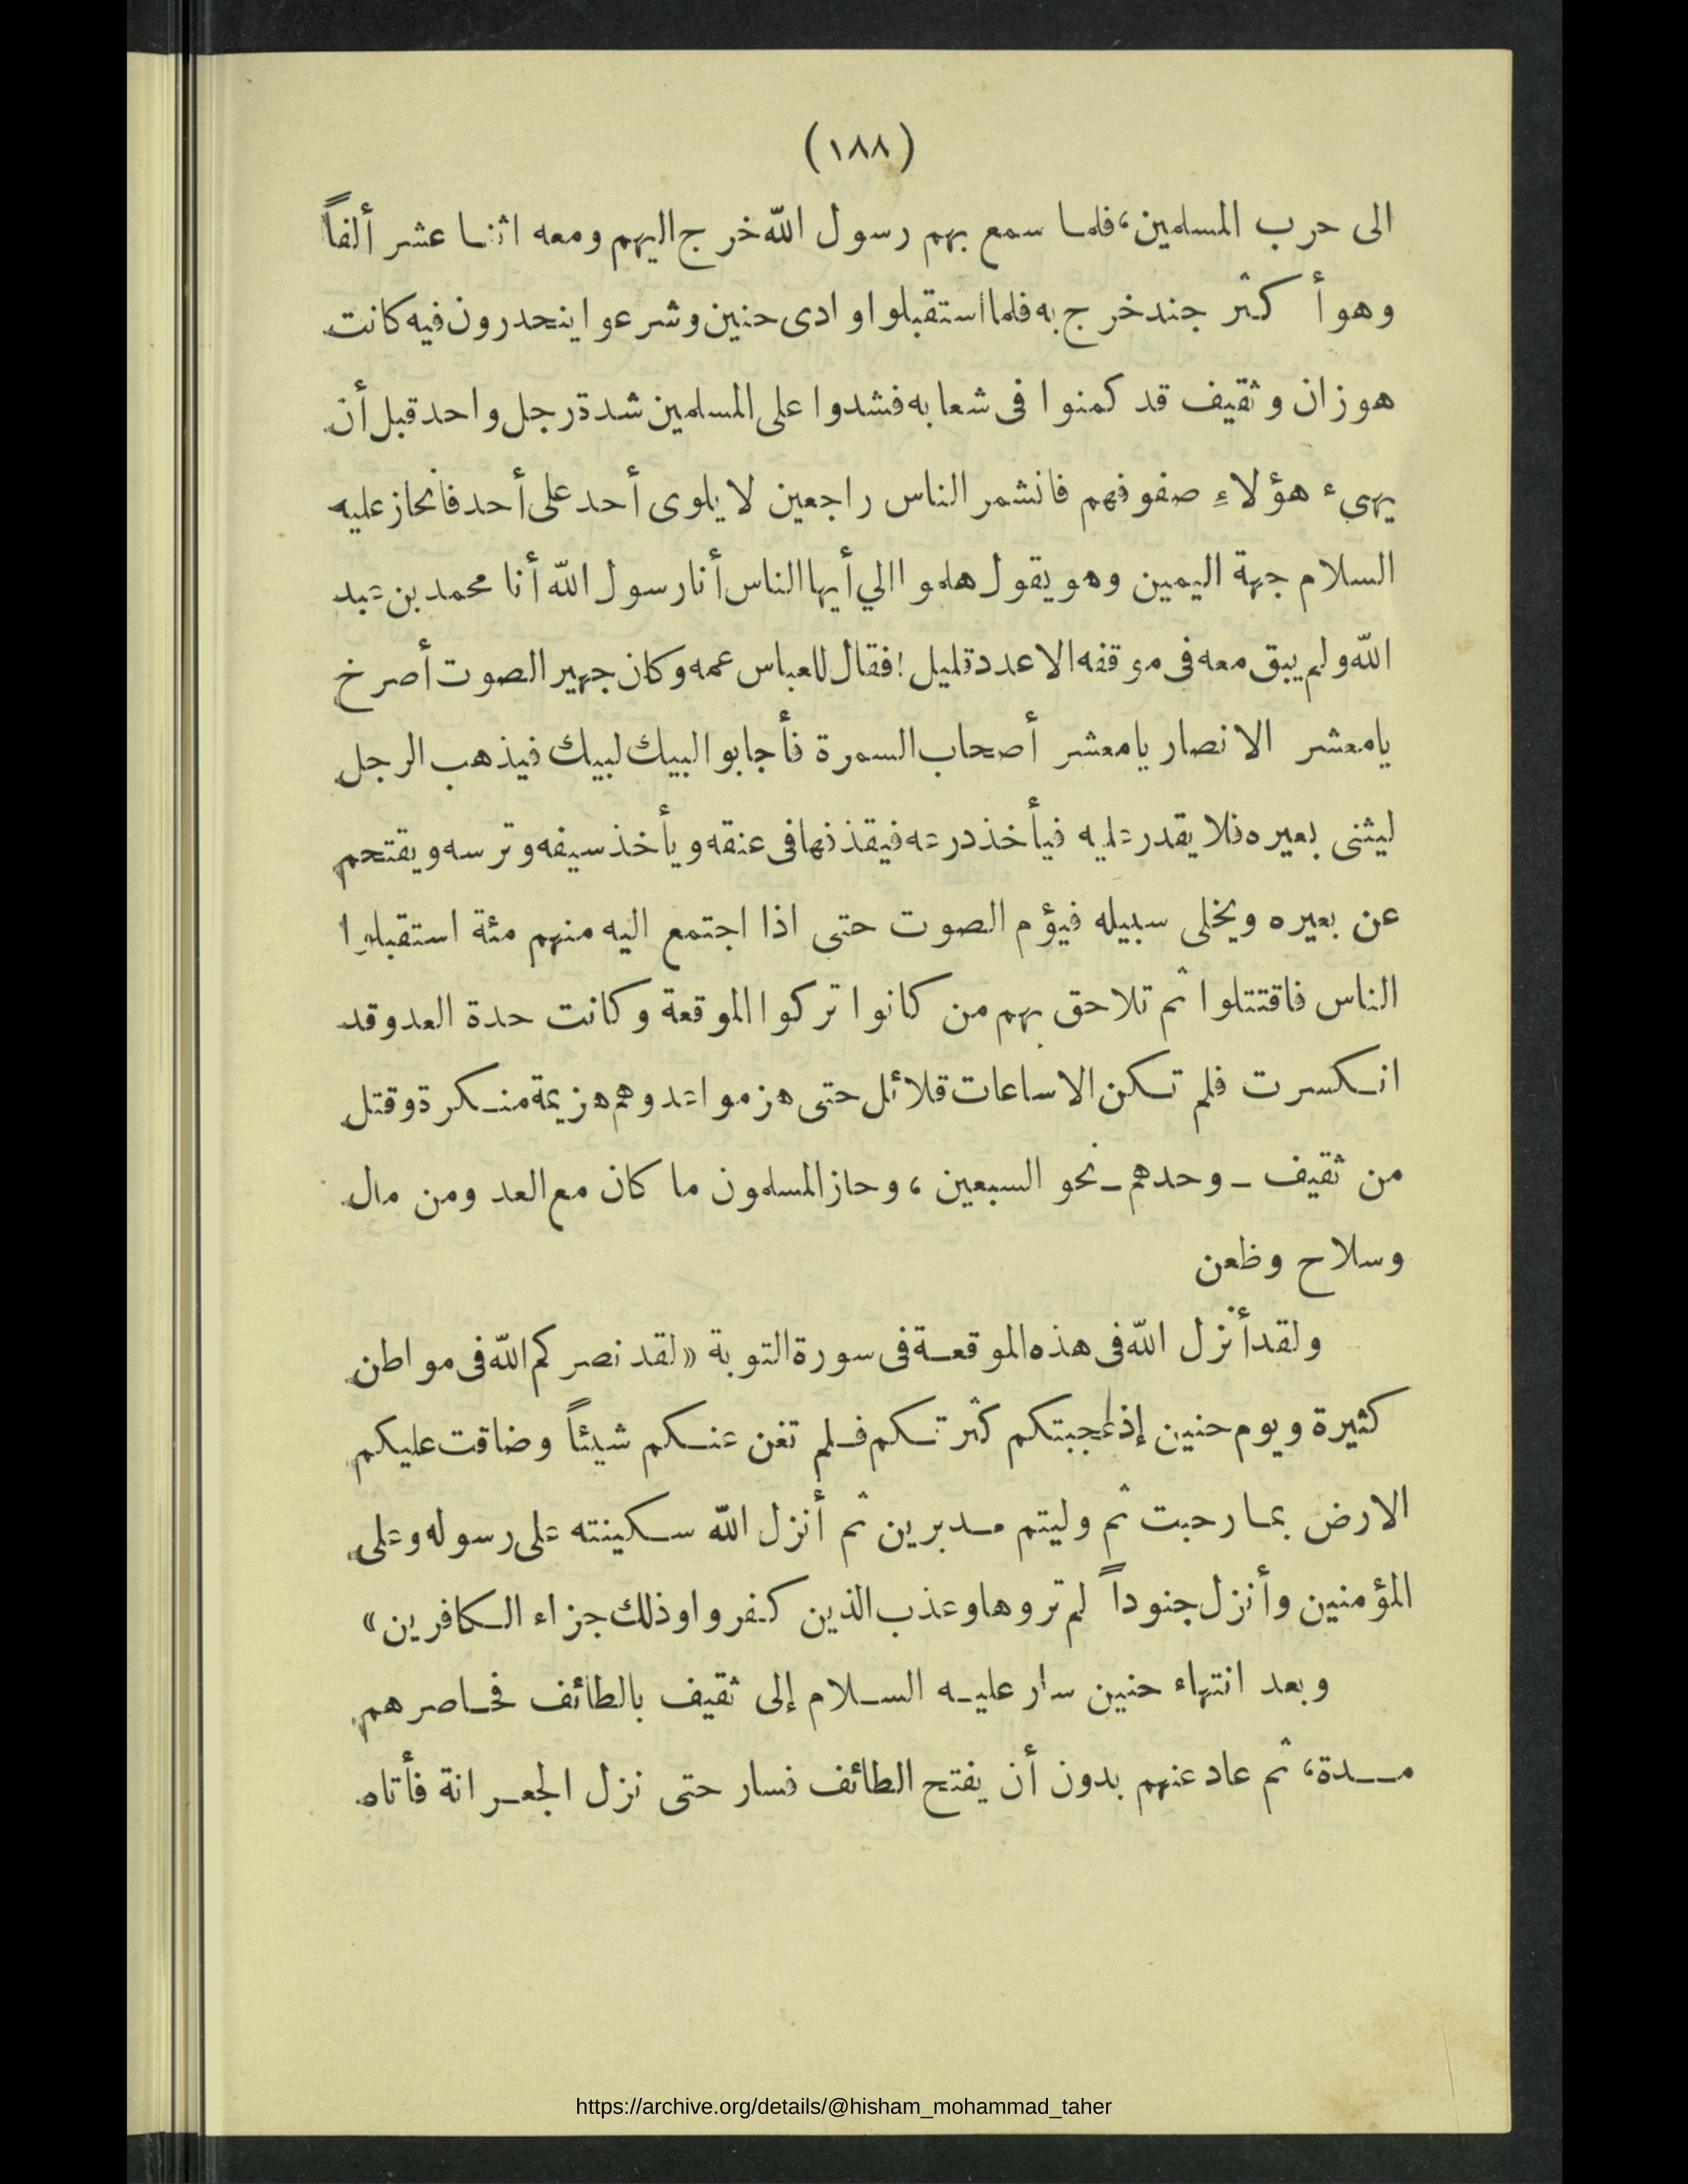 (١٨٨)
الى حرب المسلمين، فلما سمع بهم رسول الله خرج اليهم ومعه اثنا عشر ألفاً
وهو أكثر جند خرج به فلما استقبلوا وادى حنين وشرعوا ينحدرون فيه كانت
هوزان وثقيف قد كمنوا فى شعابه فشدوا على المسلمين شدة رجل واحد قبل أن
يهىء هؤلاءِ صفوفهم فانشمر الناس راجعين لا يلوى أحد على أحد فانحاز عليه
السلام جهة اليمين وهو يقول هلموا الي أيها الناس أنا رسول الله أنا محمد بن عبد
الله ولم يبق معه فى موقفه الا عدد قليل! فقال للعباس عمه وكان جهير الصوت أصرخ
يا معشر الانصار يا معشر أصحاب السمرة فأجابوا لبيك لبيك فيذهب الرجل
ليثنى بعيره فلا يقدر عليه فيأخذ درعه فيقذفها فى عنقه ويأخذ سيفه وترسه ويقتحم
عن بعيره ويخلى سبيله فيؤم الصوت حتى اذا اجتمع اليه منهم مئة استقبلوا
الناس فاقتتلوا ثم تلاحق بهم من كانوا تركوا الموقعة وكانت حدة العدو قد
انكسرت فلم تكن الا ساعات قلائل حتى هزموا عدوهم هزيمة منكرة وقتل
من ثقيف ـ وحدهم ـ نحو السبعين، وحاز المسلمون ما كان مع العدو من مال
وسلاح وظعن
ولقد أنزل الله فى هذه الموقعة فى سورة التوبة «لقد نصركم الله فى مواطن
كثيرة ويوم حنين إذ أعجبتكم كثرتكم فلم تغن عنكم شيئاً وضاقت عليكم
الارض بما رحبت ثم وليتم مدبرين ثم أنزل الله سكينته على رسوله وعلى
المؤمنين وأنزل جنوداً لم تروها وعذب الذين كفروا وذلك جزاء الكافرين»
وبعد انتهاء حنين سار عليه السلام إلى ثقيف بالطائف فحاصرهم
مدة، ثم عاد عنهم بدون أن يفتح الطائف فسار حتى نزل الجعرانة فأتاه
https://archive.org/details/@hisham_mohammad_taher